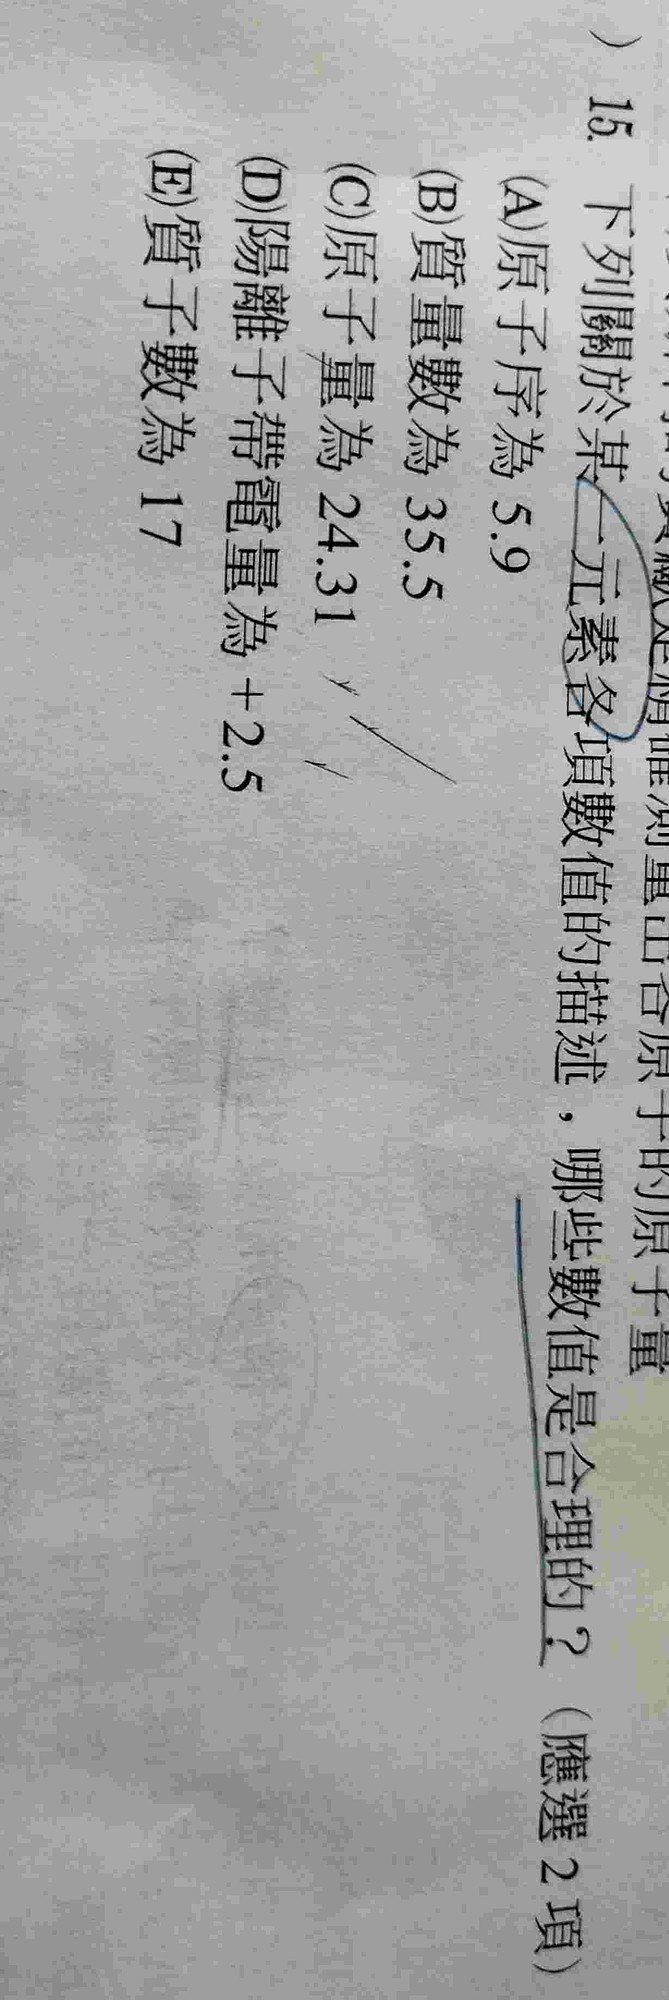 是精確測量出各原子的原子量
) 15. 下列關於某一元素各項數值的描述，哪些數值是合理的？（應選 2 項）
(A)原子序為 5.9
(B)質量數為 35.5
(C)原子量為 24.31
(D)陽離子帶電量為 +2.5
(E)質子數為 17